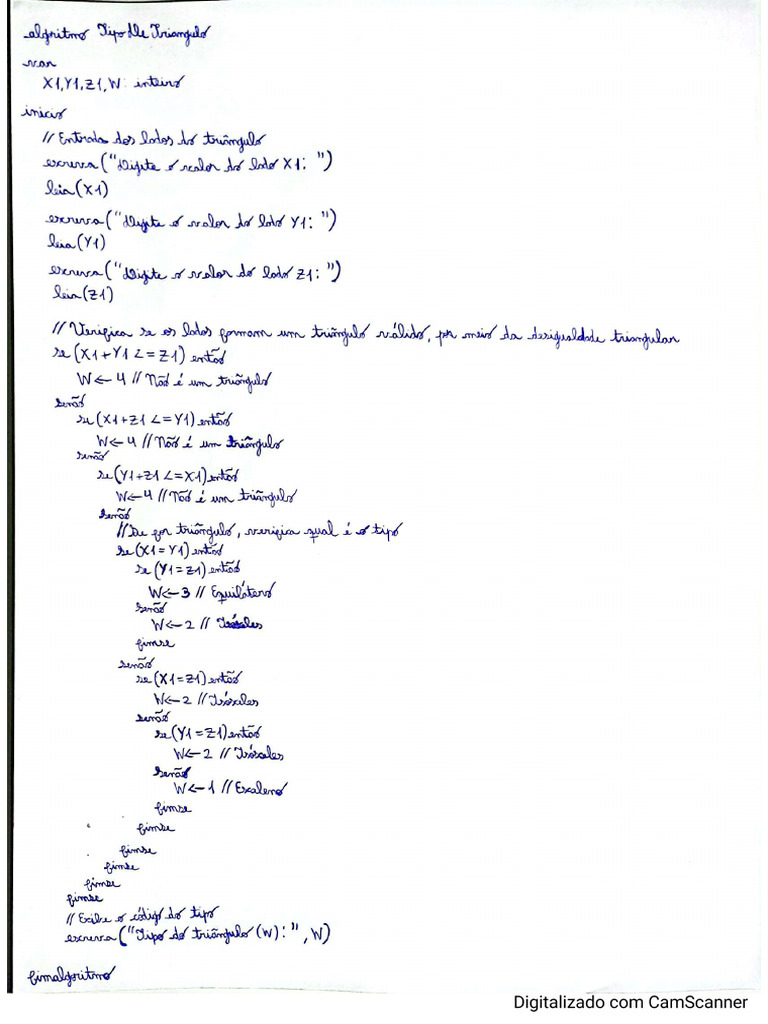 algoritmo TipoDeTriangulo
var
X1,Y1,Z1,W: inteiro
inicio
// Entrada dos lados do triângulo
escreva("Digite o valor do lado X1: ")
leia(X1)
escreva("Digite o valor do lado Y1: ")
leia(Y1)
escreva("Digite o valor do lado Z1: ")
leia(Z1)
// Verifica se os lados formam um triângulo válido, por meio da desigualdade triangular
se (X1+Y1 <= Z1) então
W <- 4 // Não é um triângulo
senão
se (X1+Z1 <= Y1) então
W <- 4 // Não é um triângulo
senão
se (Y1+Z1 <= X1) então
W <- 4 // Não é um triângulo
senão
// Se for triângulo, verifica qual é o tipo
se (X1 = Y1) então
se (Y1 = Z1) então
W <- 3 // Equilátero
senão
W <- 2 // Isósceles
fimse
senão
se (X1 = Z1) então
W <- 2 // Isósceles
senão
se (Y1 = Z1) então
W <- 2 // Isósceles
senão
W <- 1 // Escaleno
fimse
fimse
fimse
fimse
fimse
fimse
// Exibe o código do tipo
escreva("Tipo do triângulo (W): ", W)
fimalgoritmo
Digitalizado com CamScanner